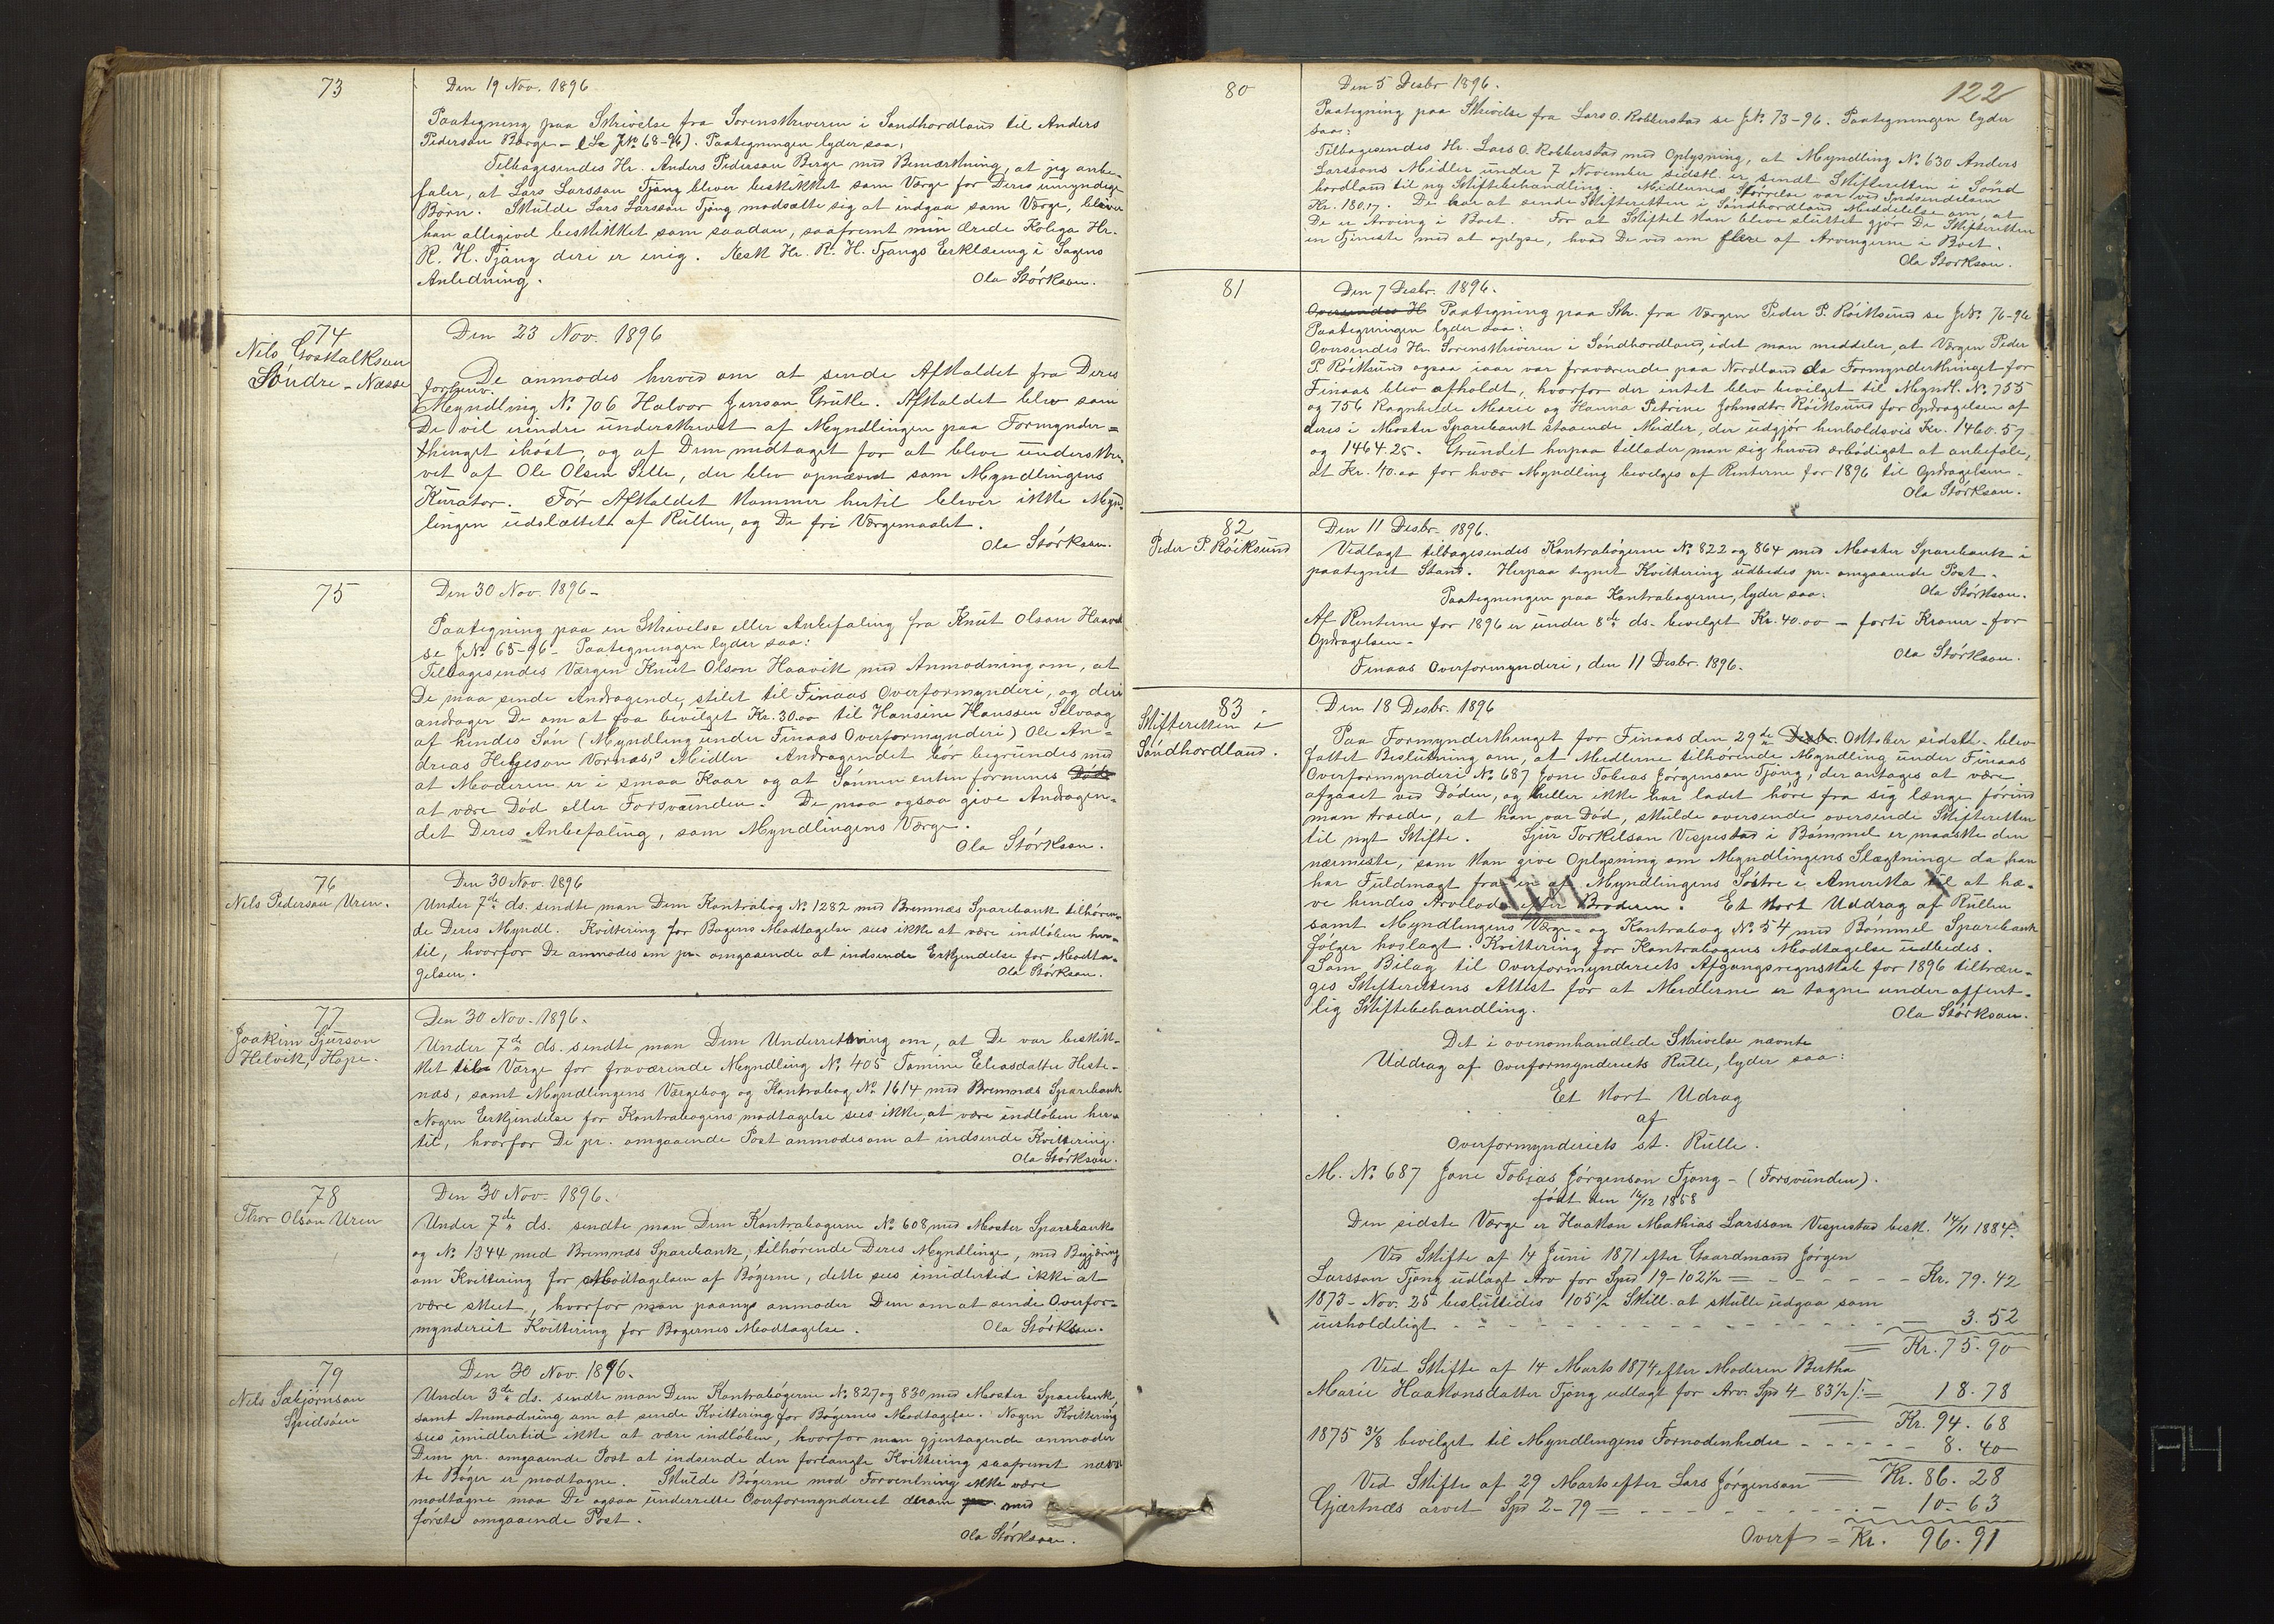 73
Den 19 Nov. 1896
Paategning paa Skrivelse fra Sorenskriveren i Søndhordland til Anders
Pederson Børge - (Se J№ 68-96). Paategningen lyder saa:
Tilbagesendes Hr. Anders Pederson Berge med Bemærkning, at jeg anbe-
faler, at Lars Larsson Tjong bliver beskikket som Værge for Deres umyndige
Børn. Skulde Lars Larsson Tjong modsætte sig at indgaa som Værge, bliver
han alligivel beskikket som saadan, saafremt min ærede Kolega Hr.
R. H. Tjong deri er enig. Æsk Hr. R. H. Tjongs Erklæring i Sagens
Anledning.
Ola Størkson.
74
Nils Goskalkson
Søndre-Næsse
Den 23 Nov. 1896
De anmodes herved om at sende Afkaldet fra Deres
forhenv.
Myndling № 706 Halvor Jenson Grutle. Afkaldet blev som
De vil erindre underskrevet af Myndlingen paa Formynder=
thinget ihøst, og af Dem modtaget for at blive underskre-
vet af Ole Olsen Lille, der blev opnævnt som Myndlingens
Kurator. Før Afkaldet kommer hertil bliver ikke Mynd-
lingen udslættet af Rullen, og De fri Værgemaalet.
Ola Størkson.
75
Den 30 Nov. 1896-
Paategning paa en Skrivelse eller Anbefaling fra Knut Olson Haavik
se J№ 65-96- Paategningen lyder saa:
Tilbagesendes Værgen Knut Olson Haavik med Anmodning om, at
De maa sende Andragende, stilet til Finaas Overformynderi, og deri
andrager De om at faa bevilget Kr. 30.00 til Hansine Hanssen Selvaag
af hendes Søn (Myndling under Finaas Overformynderi) Ole An-
dreas Helgeson Vornæs' Midler. Andragendet bør begrundes med
at Moderen er i smaa Kaar og at Sønnen enten formenes Død
at være Død eller Forsvunden. De maa ogsaa give Andragen-
det Deres Anbefaling, som Myndlingens Værge.
Ola Størkson.
76
Nils Pederson Uren.
Den 30 Nov. 1896
Under 7de ds. sendte man Dem Kontrabog № 1282 med Bremnæs Sparebank tilhøren-
de Deres Myndl. Kvittering for Bogens Modtagelse sees ikke at være indløben her-
til, hvorfor De anmodes om pr. omgaaende at indsende Erkjendelse for Modta-
gelsen.
Ola Størkson.
77
Joakim Sjurson
Helvik, Hope.
Den 30 Nov. 1896.
Under 7de ds. sendte man Dem Underretning om, at De var beskik-
ket til Værge for fraværende Myndling № 405 Tomine Eliasdatter Heste-
næs, samt Myndlingens Værgebog og Kontrabog № 1614 med Bremnæs Sparebank
Nogen Erkjendelse for Kontrabogens modtagelse sees ikke, at være indløben her-
til, hvorfor De pr. omgaaende Post anmodes om at indsende Kvittering.
Ola Størkson.
78
Thor Olson Uren
Den 30 Nov. 1896.
Under 7de ds. sendte man Dem Kontrabøgerne № 608 med Moster Sparebank
og № 1344 med Bremnæs Sparebank, tilhørende Deres Myndlinge, med Begjæring
om Kvittering for Modtagelsen af Bøgerne, dette sees imidlertid ikke at
være skeet, hvorfor man paany anmoder Dem om at sende Overfor-
mynderiet Kvittering for Bøgernes Modtagelse.
Ola Størkson.
79
Nils Sæbjørnson
Spidsøen
Den 30 Nov. 1896.
Under 3de ds. sendte man Dem Kontrabøgerne № 827 og 830 med Moster Sparebank,
samt Anmodning om at sende Kvittering for Bøgernes Modtagelse. Nogen Kvittering
sees imidlertid ikke at være indløben, hvorfor man gjentagende anmoder
Dem pr. omgaaende Post at indsende den forlangte Kvittering saafremt nævn-
te Bøger er modtagne. Skulde Bøgerne mod Forventning ikke være
modtagne maa De ogsaa underrette Overformynderiet derom pr. med
første omgaaende Post.
Ola Størkson.
122
80
Den 5 Desbr 1896.
Paategning paa Skrivelse fra Lars O. Robberstad se J№ 73-96. Paategningen lyder
saa:
Tilbagesendes Hr. Lars O. Robberstad med Oplysning, at Myndling № 630 Anders
Larssons Midler under 7 November sidstl. er sendt Skifteretten i Sønd
hordland til ny Skiftebehandling. Midlernes Størrelse var ved Indsendelsen
Kr. 180.17. De bør at sende Skifteretten i Søndhordland Meddelelse om, at
De er Arving i Boet. For at Skiftet kan blive sluttet gjør De Skifteretten
en Tjeneste med at oplyse, hvad De ved om flere af Arvingerne i Boet.
Ola Størkson.
81
Den 7 Desbr. 1896.
Oversendes H Paategning paa Skr. fra Værgen Peder P. Röiksund se J№ 76-96
Paategningen lyder saa:
Oversendes Hr. Sorenskriveren i Søndhordland, idet man meddeler, at Værgen Peder
P. Röiksund ogsaa iaar var fraværende paa Nordland da Formynderthinget for
Finaas blev afholdt, hvorfor der intet blev bevilget til Myndl. № 755
og 756 Ragnhilde Marie og Hanna Petrine Johnsdtr. Röiksund for Opdragelsen af
deres i Moster Sparebank staaende Midler, der udgjør henholdsvis Kr. 1460.57
og 1464.25. Grundet herpaa tillader man sig herved ærbødigst at anbefale,
at Kr. 40.00 for hver Myndling bevilges af Renterne for 1896 til Opdragelsen.
Ola Størkson.
82
Peder P. Röiksund
Den 11 Desbr. 1896.
Vedlagt tilbagesendes Kontrabøgerne № 822 og 864 med Moster Sparebank i
paategnet Stand. Herpaa tegnet Kvittering udbedes pr. omgaaende Post.
Ola Størkson.
Paategningen paa Kontrabøgerne, lyder saa:
Af Renterne for 1896 er under 8de ds. bevilget Kr. 40.00 - forti Kroner - for
Opdragelsen.
Finaas Overformynderi, den 11 Desbr. 1896.
Ola Størkson.
83
Skifteretten i
Søndhordland.
Den 18 Desbr. 1896
Paa Formynderthinget for Finaas den 29de Desb. Oktober sidstl. blev
fattet Beslutning om, at Midlerne tilhørende Myndling under Finaas
Overformynderi № 687 Jone Tobias Jørgenson Tjong, der antages at være
afgaaet ved Døden, og heller ikke har ladet høre fra sig længe førend
man troede, at han var Død, skulde oversende oversende Skifteretten
til nyt Skifte. Sjur Torkelson Vespestad i Bømmel er maaske den
nærmeste, som kan give Oplysning om Myndlingens Slægtninge da han
har Fuldmagt fra en af Myndlingens Søstre i Amerika til at hæ-
ve hendes Arvelod efter Broderen. Et kort Uddrag af Rullen
samt Myndlingens Værge- og Kontrabog № 54 med Bømmel Sparebank
følger hoslagt. Kvittering for Kontrabogens Modtagelse udbedes.
Som Bilag til Overformynderiets Afgangsregnskab for 1896 tiltræn-
ges Skifterettens Attest for at Midlerne er tagne under offent-
lig Skiftebehandling.
Ola Størkson.
Det i ovenomhandlede Skrivelse nævnte
Uddrag af Overformynderiets Rulle, lyder saa:
Et kort Udrag
af
Overformynderiets st. Rulle.
M. № 687 Jone Tobias Jørgenson Tjong - (Forsvunden).
født den 16/12 1858
Den sidste Værge er Haakon Mathias Larsson Vespestad besk. 14/11 1884.
Ved Skifte af 14 Juni 1871 efter Gaardmand Jørgen
Larsson Tjong udlagt Arv for Spd 19-102½ = - - - - - Kr. 79.42
1873- Nov. 25 besluttedes 105½ Skill. at skulle udgaa som
uerholdeligt - - - - - - - 3.52
= Kr. 75.90
Ved Skifte af 14 Marts 1874 efter Moderen Bertha
Marie Haakonsdatter Tjong udlagt for Arv. Spd 4-83½ ſ. = 18.78
Kr. 94.68
1875 31/8 bevilget til Myndlingens Fornødenheder - - - - - - 8.40
Kr. 86.28
Ved Skifte af 29 Marts efter Lars Jørgenson
Gjærtnæs arvet Spd 2-79 = - - - - - - 10.63
Overf = Kr. 96.91